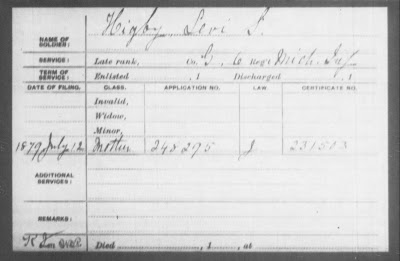 NAME OF SOLDIER: Higby, Levi S.
SERVICE: Late rank, Co. G, 6 Reg't Mich. Inf.
TERM OF SERVICE: Enlisted , 1 Discharged , 1
DATE OF FILING. CLASS. APPLICATION NO. LAW. CERTIFICATE NO.
Invalid,
Widow,
Minor,
1879 July 12 Mother 248295 J 231503
ADDITIONAL SERVICES:
REMARKS:
Died , 1 , at